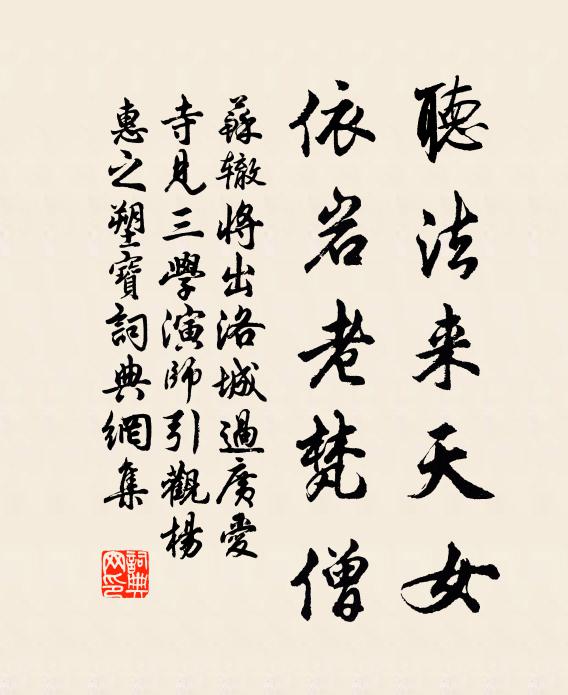 聽法来天女
依岩老梵僧
蘇辙將出洛城過廣愛
寺見三學演師引觀楊
惠之塑寶詞典網集
詞典
网印